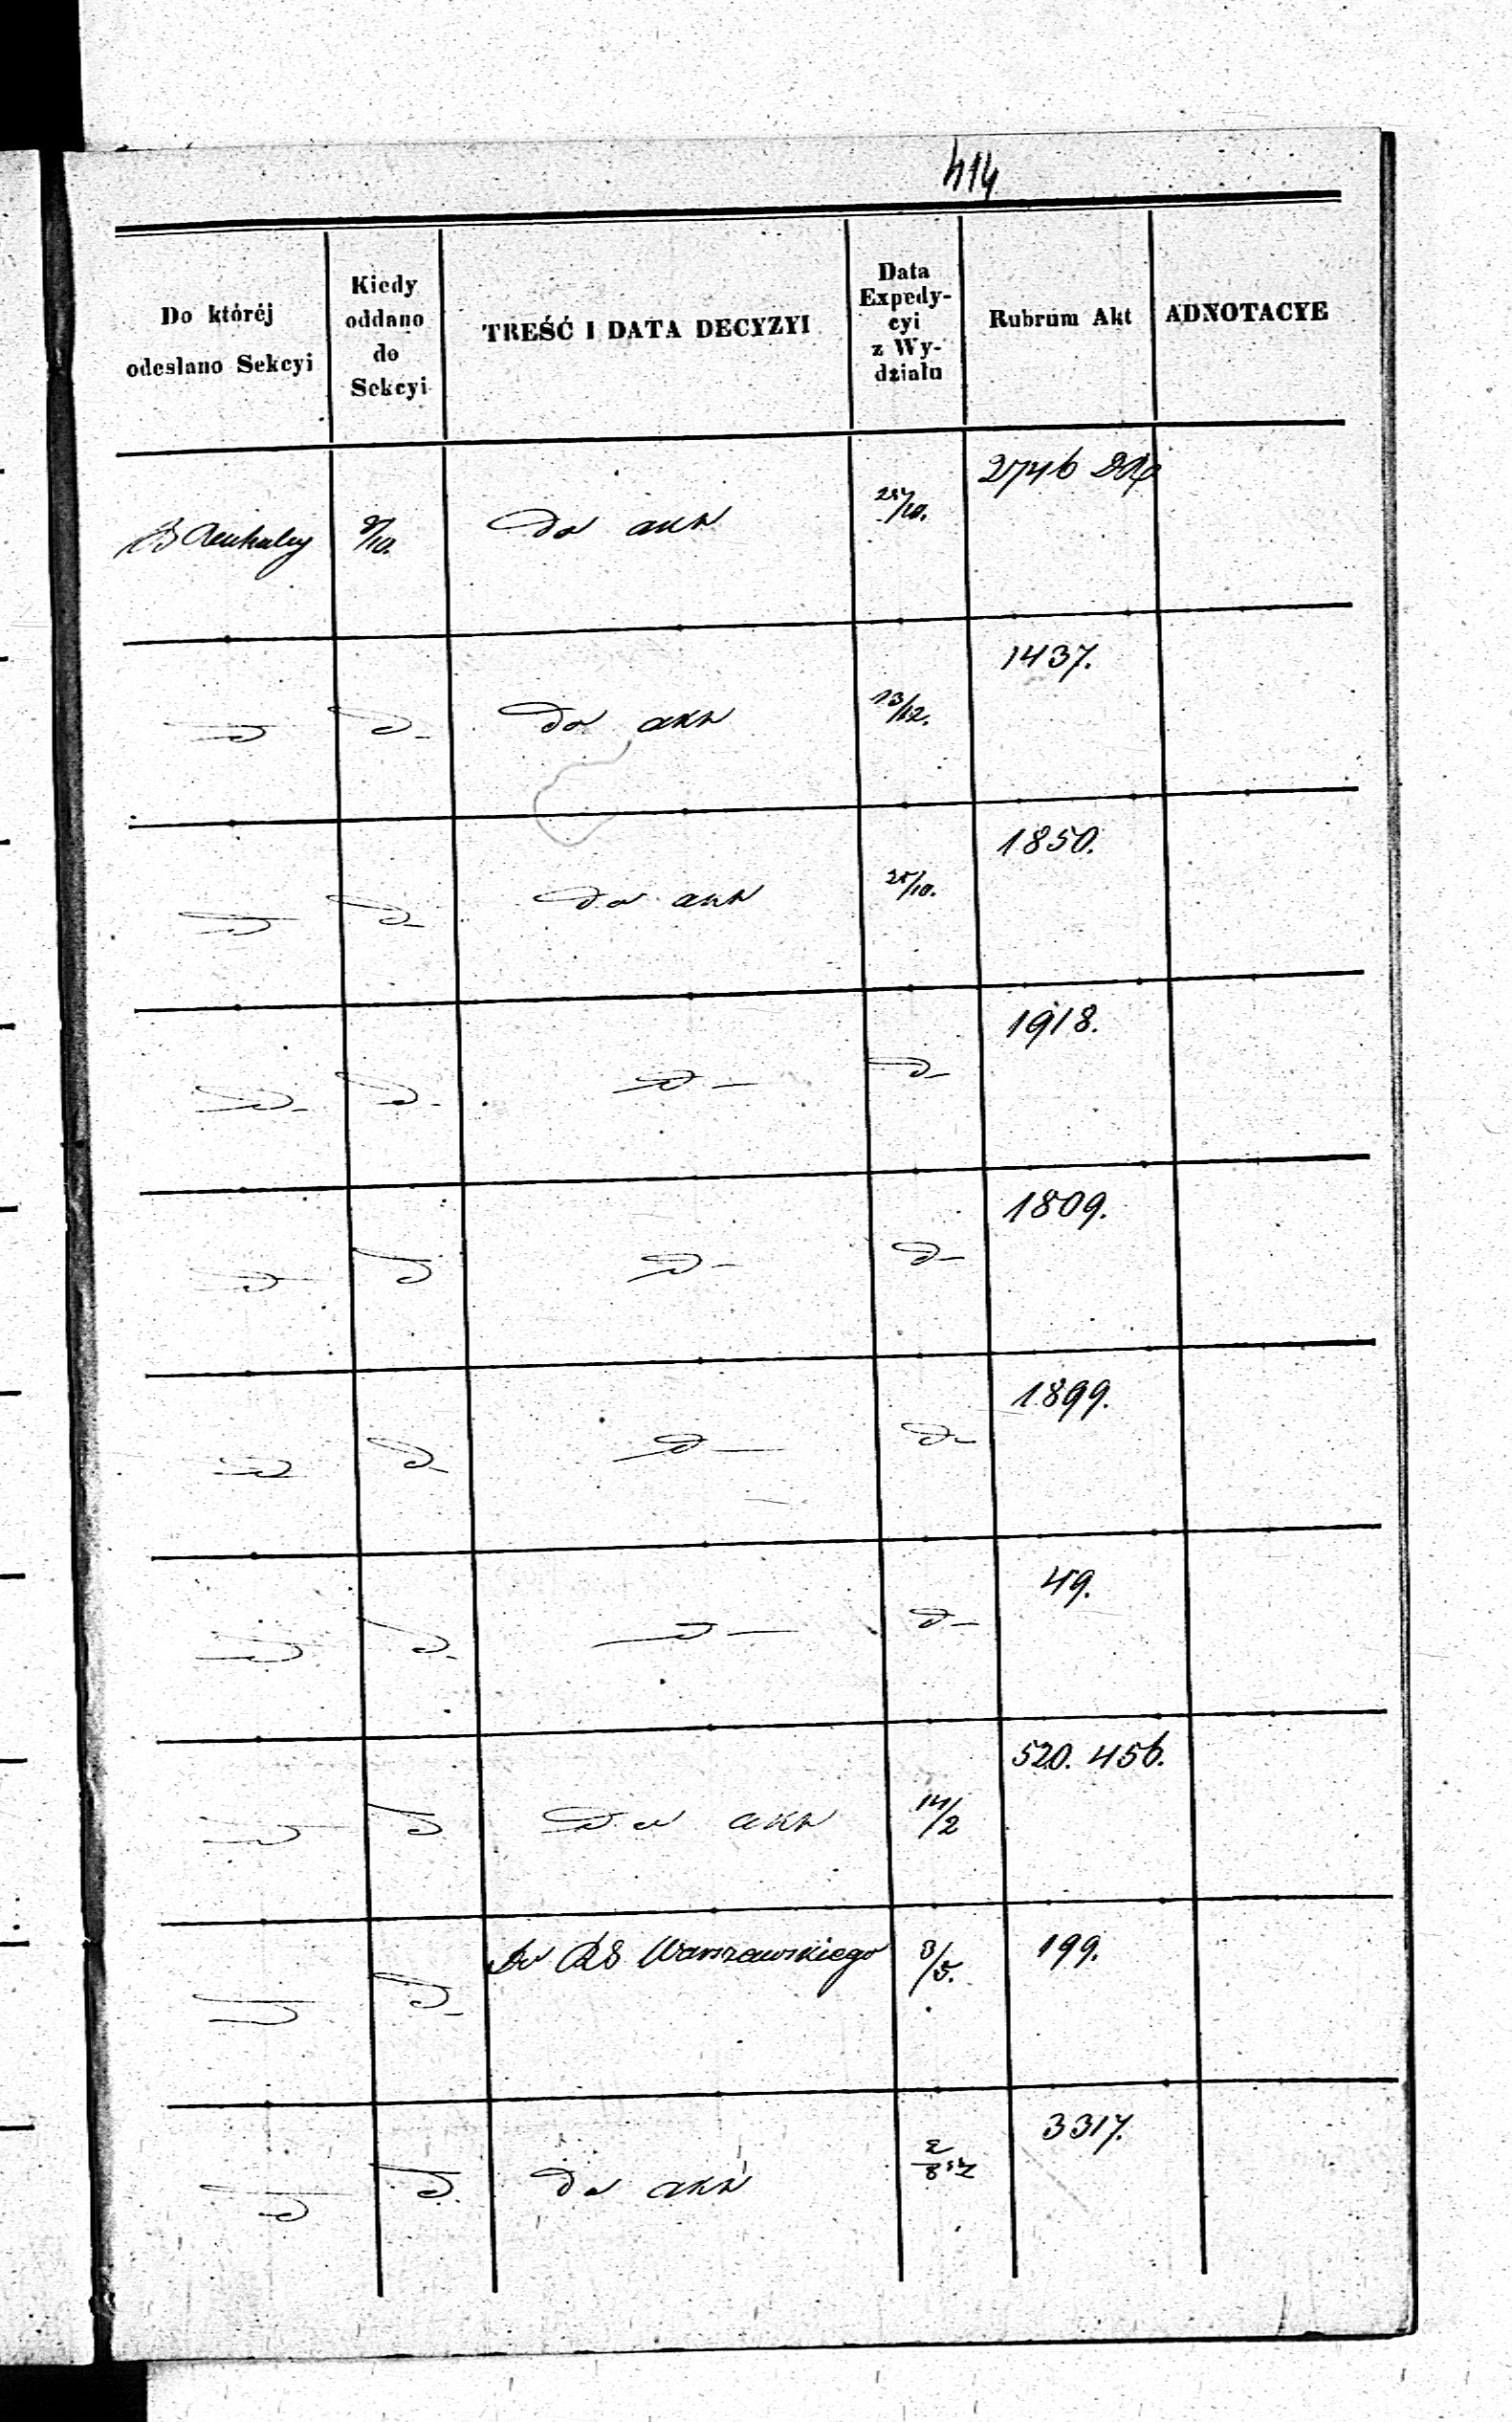 414
Do któréj
odesłano Sekcyi
Kiedy
oddano
do
Sekcyi
TREŚĆ I DATA DECYZYI
Data
Expedy-
cyi
z Wy-
działu
Rubrum Akt
ADNOTACYE
9/10. Do akt 25/10. 2746
D D Do akt 13/12. 1437.
D D Do akt 25/10. 1850.
D D D D 1918.
D D D D 1809.
D D D D 1899.
D D D D 49.
D D Do akt 14/2 520. 456.
D D Do Warszawskiego 3/5. 199.
D D Do akt 3317.